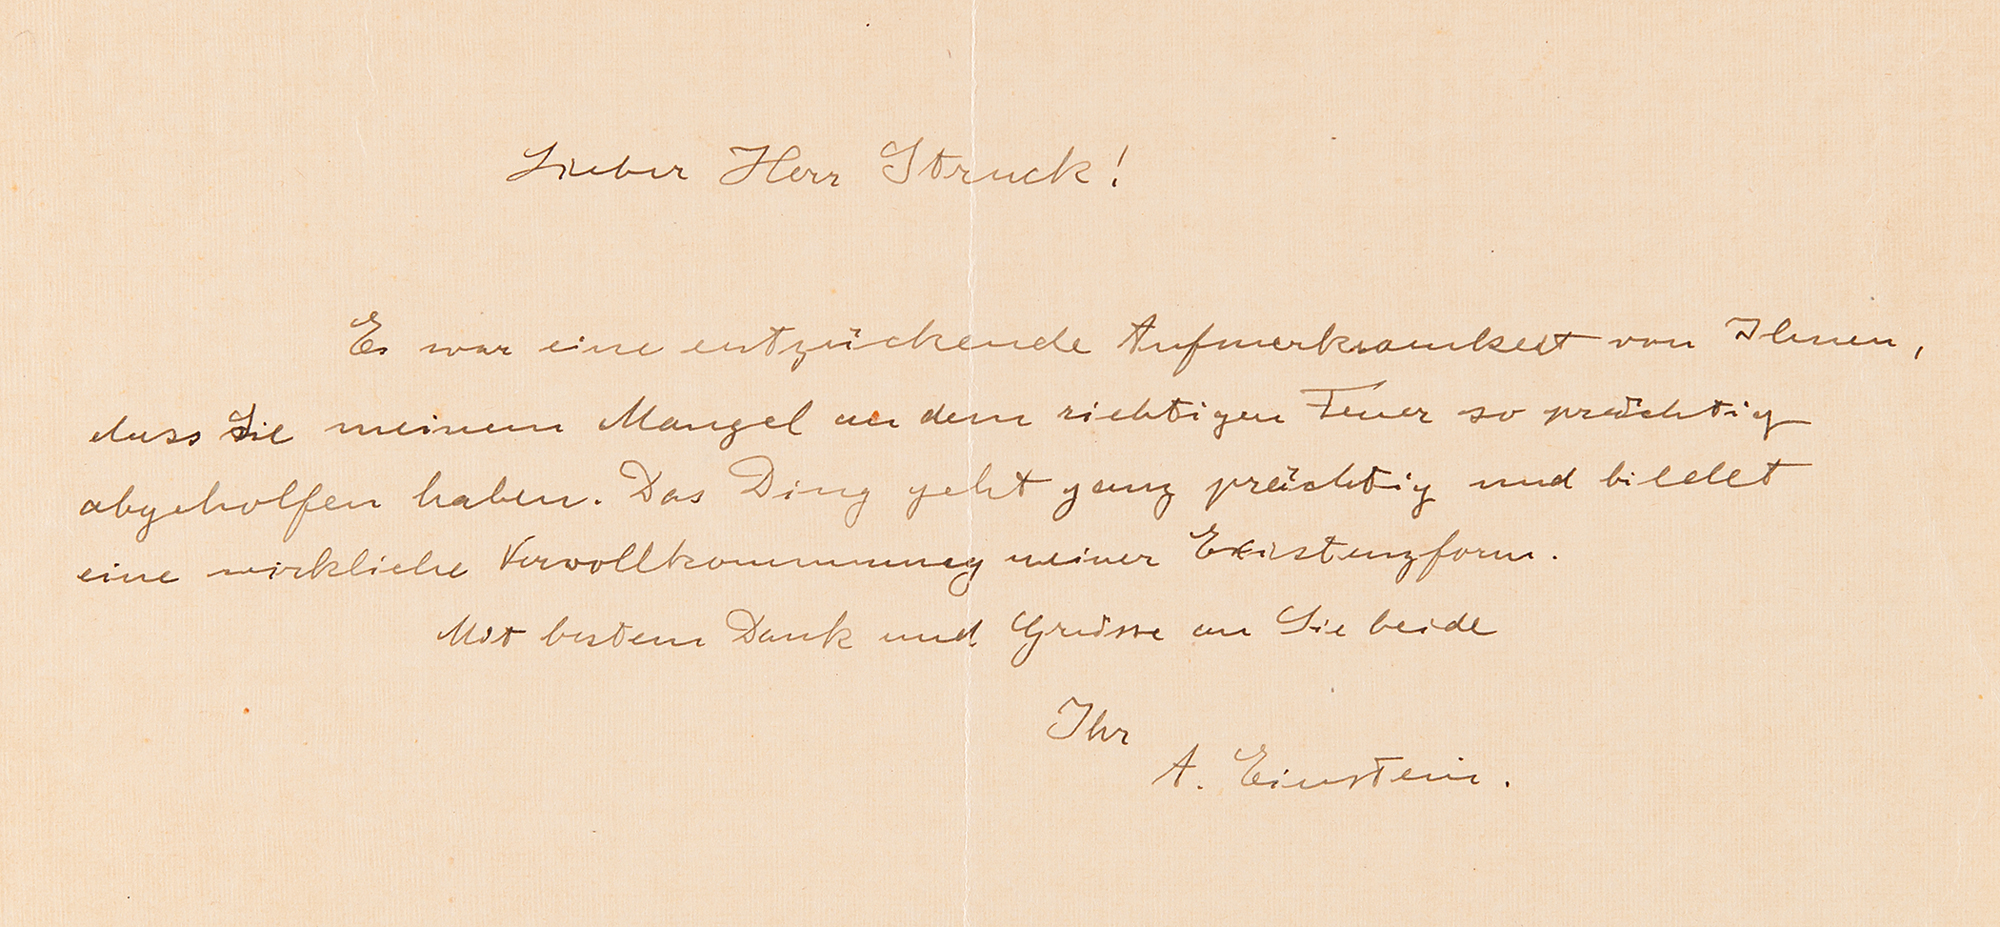 Lieber Herr Struck!
Es war eine entzückende Aufmerksamkeit von Ihnen,
dass Sie meinem Mangel an dem richtigen Feuer so prächtig
abgeholfen haben. Das Ding geht ganz prächtig und bildet
eine wirkliche Vervollkommnung meiner Existenzform.
Mit bestem Dank und Grüsse an Sie beide
Ihr
A. Einstein.